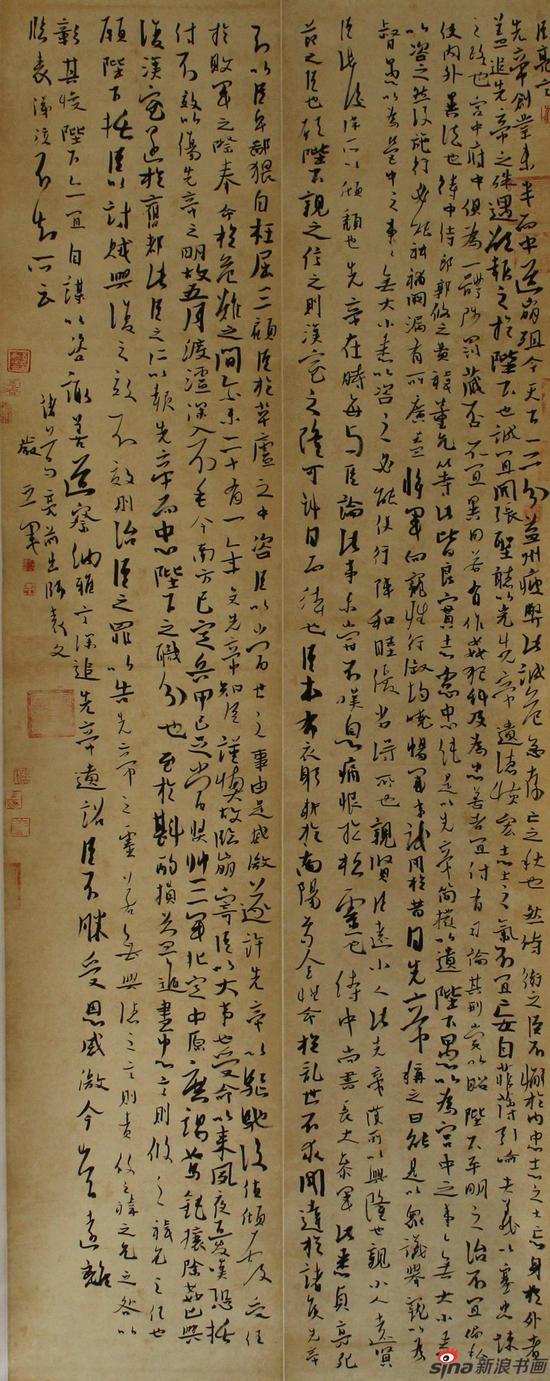 臣亮言
先帝創業未半而中道崩殂今天下三分益州疲弊此誠危急存亡之秋也然侍衛之臣不懈於內忠志之士忘身於外者
蓋追先帝之殊遇欲報之於陛下也誠宜開張聖聽以光先帝遺德恢宏志士之氣不宜妄自菲薄引喻失義以塞忠諫
之路也宮中府中俱為一體陟罰臧否不宜異同若有作姦犯科及為忠善者宜付有司論其刑賞以昭陛下平明之治不宜偏私
使內外異法也侍中侍郎郭攸之費禕董允等此皆良實志慮忠純是以先帝簡拔以遺陛下愚以為宮中之事事無大小悉
以咨之然後施行必能裨補闕漏有所廣益將軍向寵性行淑均曉暢軍事試用於昔日先帝稱之曰能是以眾議舉寵以為
督愚以為營中之事事無大小悉以咨之必能使行陣和睦優劣得所也親賢臣遠小人此先漢所以興隆也親小人遠賢
臣此後漢所以傾頹也先帝在時每與臣論此事未嘗不嘆息痛恨於桓靈也侍中尚書長史參軍此悉貞亮死
節之臣也願陛下親之信之則漢室之隆可計日而待也臣本布衣躬耕於南陽苟全性命於亂世不求聞達於諸侯先帝
不以臣卑鄙猥自枉屈三顧臣於草廬之中咨臣以當世之事由是感激遂許先帝以驅馳後值傾覆受任
於敗軍之際奉命於危難之間爾來二十有一年矣先帝知臣謹慎故臨崩寄臣以大事也受命以來夙夜憂嘆恐托
付不效以傷先帝之明故五月渡瀘深入不毛今南方已定兵甲已足當獎帥三軍北定中原庶竭駑鈍攘除姦凶興
復漢室還於舊都此臣之所以報先帝而忠陛下之職分也至於斟酌損益進盡忠言則攸之禕允之任也
願陛下托臣以討賊興復之效不效則治臣之罪以告先帝之靈若無興德之言則責攸之禕允之咎以
彰其慢陛下亦宜自謀以咨諏善道察納雅言深追先帝遺詔臣不勝受恩感激今當遠離
臨表涕泣不知所云
諸葛亮前出師表文
sina新浪书画